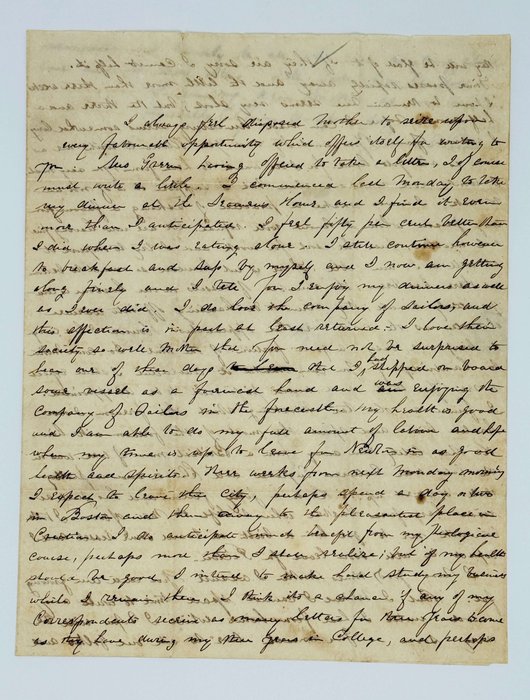 I always feel disposed Mother to seize upon
every favourable opportunity which offers itself for writing to
you. Mrs Green having offered to take a letter, I of course
must write a little. I commenced last Monday to take
my dinner at the Seamens House and I find it even
more than I anticipated. I feel fifty per cent better than
I did when I was eating alone. I still continue however
to breakfast and sup by myself and I now am getting
along finely and I tell you I enjoy my dinners as well
as I ever did. I do love the company of Sailors, and
this affection is in part at least returned. I love their
society so well Mother that you need not be surprised to
hear one of these days that I had shipped on board
some vessel as a foremast hand and was enjoying the
Company of Sailors in the forecastle. My health is good
and I am able to do my full amount of labour and hope
when my time is up to leave for in as good
health and spirits. Three weeks from next Monday morning
I expect to leave the City, perhaps spend a day or two
in Boston and then to the pleasantest place in
I do anticipate much from my
course, perhaps more than I shall realize, but if my health
should be good, I intend to make hard study my business
while I remain there. I think its a chance if any of my
Correspondents receive as many letters for three years to come
as they have during my three years in College, and perhaps